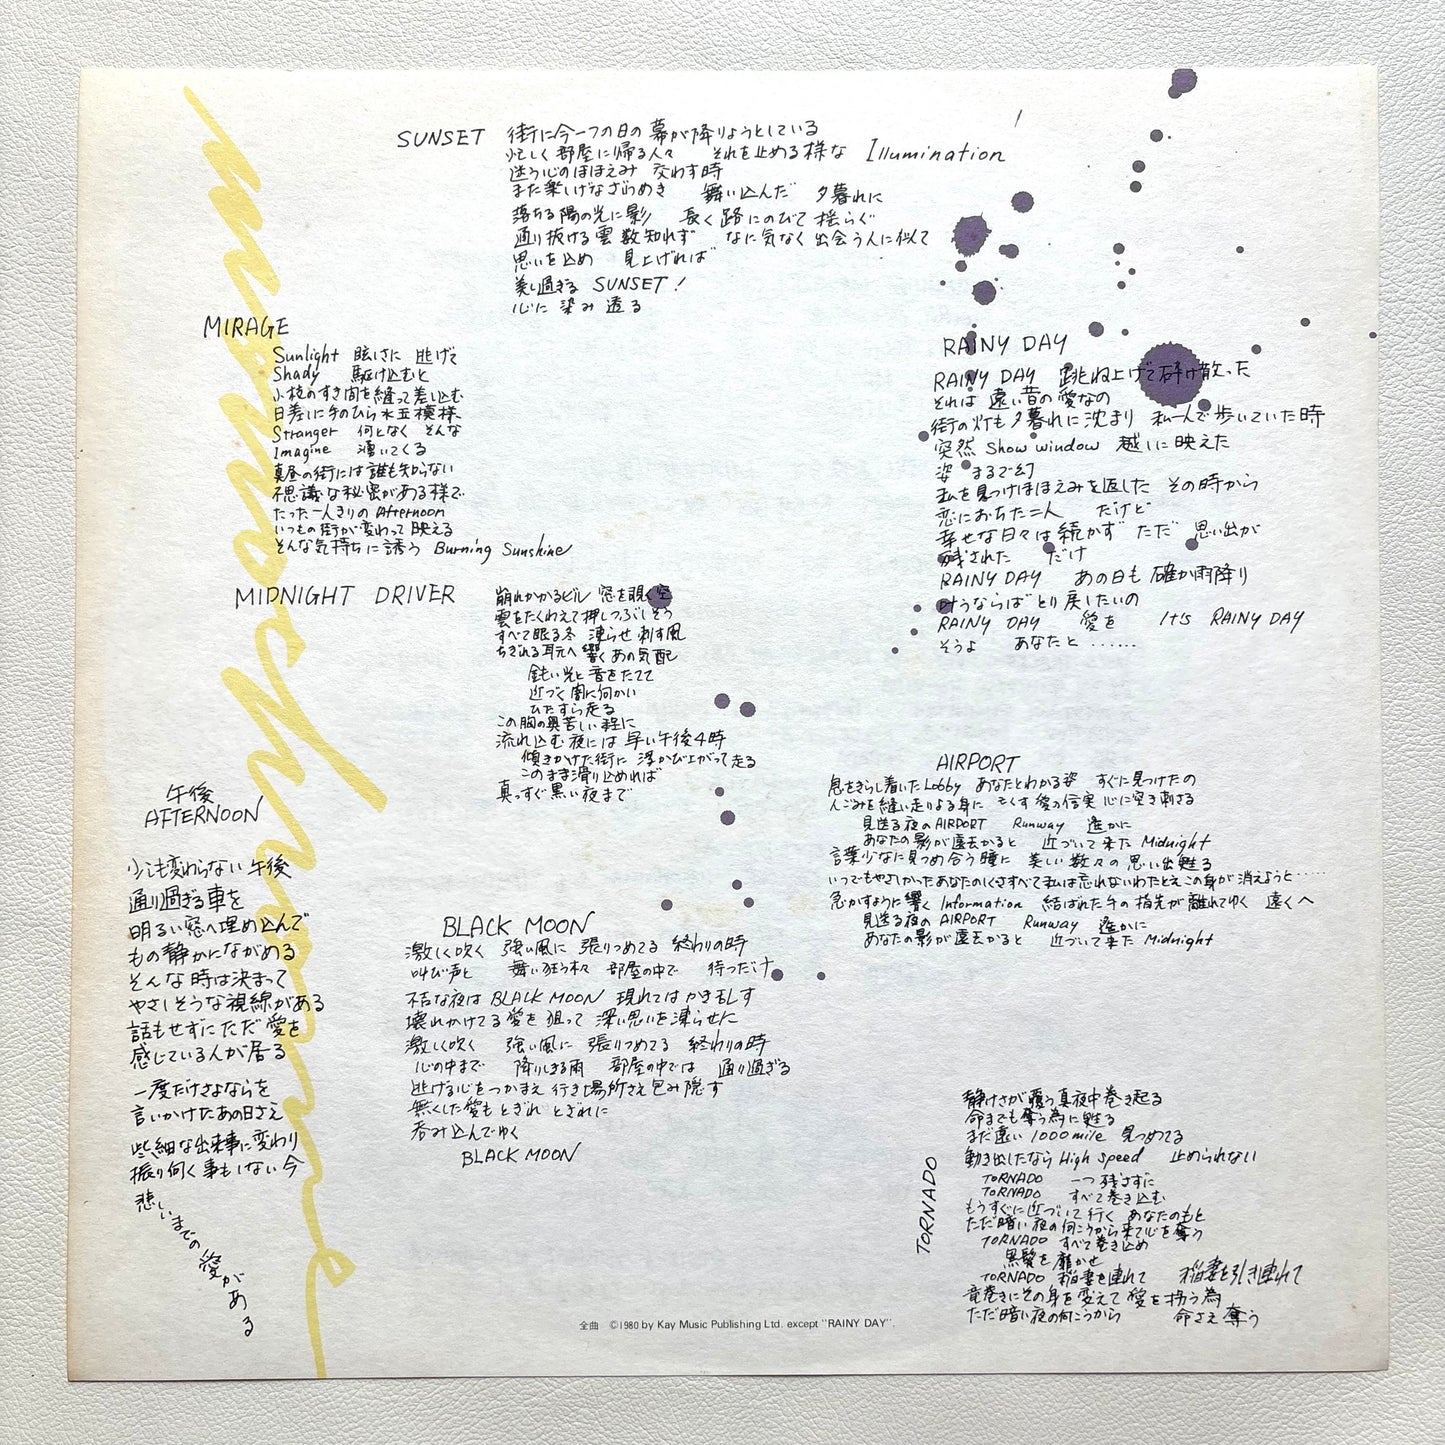 monochrome
SUNSET
街に今一つの日の幕が降りようとしている
忙しく部屋に帰る人々 それを止める様な Illumination
迷う心のほほえみ 交わす時
また楽しげなざわめき 舞い込んだ 夕暮れに
落ちる陽の光に影 長く路にのびて揺らぐ
通り抜ける雲数知れず なに気なく出会う人に似て
思いを込め 見上げれば
美し過ぎる SUNSET!
心に 染み 透る
MIRAGE
Sunlight 眩しさに 逃げて
Shady 駆け込むと
小枝のすき間を縫って差し込む
日差しに手のひら水玉模様
Stranger 何となく そんな
Imagine 湧いてくる
真昼の街には誰も知らない
不思議な秘密がある様で
たった一人きりの Afternoon
いつもの街が変わって映える
そんな気持ちに誘う Burning Sunshine
RAINY DAY
RAINY DAY 跳ね上げて砕け散った
それは 遠い昔の愛なの
街の灯も夕暮れに沈まり 私一人で歩いていた時
突然 Show window 越しに映えた
姿 まるで幻
私を見つけほほえみを返した その時から
恋におちた二人 だけど
幸せな日々は続かず ただ 思い出が
残された だけ
RAINY DAY あの日も確か雨降り
叶うならば とり戻したいの
RAINY DAY 愛を It's RAINY DAY
そうよ あなたと ……
MIDNIGHT DRIVER
崩れかかるビル 窓を覗く空
雲をたくわえて押しつぶしそう
すべて眠る冬 凍らせ刺す風
ちぎれる耳元へ響くあの気配
鈍い光と音をたてて
近づく闇に向かい
ひたすら走る
この胸の奥苦しい程に
流れ込む夜には早い午後4時
傾きかけた街に 浮かび上がって走る
このまま滑り込めれば
真っすぐ黒い夜まで
AIRPORT
息をきらし着いた Lobby あなたとわかる姿 すぐに見つけたの
人ごみを縫い走りよる身に そくす愛の信実 心に突き刺さる
見送る夜の AIRPORT Runway 遙かに
あなたの影が遠去かると 近づいて来た Midnight
言葉少なに見つめ合う瞳に 美しい数々の思い出甦る
いつでもやさしかったあなたのしぐさすべて私は忘れないわたとえこの身が消えようと……
急かすように響く Information 結ばれた手の指先が離れてゆく 遠くへ
見送る夜の AIRPORT Runway 遙かに
あなたの影が遠去かると 近づいて来た Midnight
午後
AFTERNOON
少しも変わらない午後
通り過ぎる車を
明るい窓へ埋め込んで
もの静かにながめる
そんな時は決まって
やさしそうな視線がある
話もせずにただ愛を
感じている人が居る
一度だけさよならを
言いかけたあの日さえ
些細な出来事に変わり
振り向く事もしない今
悲しいまでの愛がある
BLACK MOON
激しく吹く 強い風に 張りつめてる 終わりの時
叫び声と 舞い狂う木々 部屋の中で 待つだけ
不吉な夜は BLACK MOON 現れてはかき乱す
壊れかけてる愛を狙って 深い思いを凍らせに
激しく吹く 強い風に 張りつめてる 終わりの時
心の中まで 降りしきる雨 部屋の中では 通り過ぎる
逃げる心をつかまえ行き場所さえ包み隠す
無くした愛もとぎれ とぎれに
呑み込んでゆく
BLACK MOON
TORNADO
静けさが覆う真夜中巻き起る
命までも奪う為に甦る
まだ遠い 1000mile 見つめてる
動き出したなら High speed 止められない
TORNADO 一つ残さずに
TORNADO すべて巻き込む
もうすぐに近づいて行く あなたのもと
ただ暗い夜の向こうから来て心を奪う
TORNADO すべて巻き込め
黒髪を靡かせ
TORNADO 稲妻を連れて 稲妻を引き連れて
竜巻きにその身を変えて愛を拐う為
ただ暗い夜の向こうから 命さえ奪う
全曲 ©1980 by Kay Music Publishing Ltd. except "RAINY DAY".